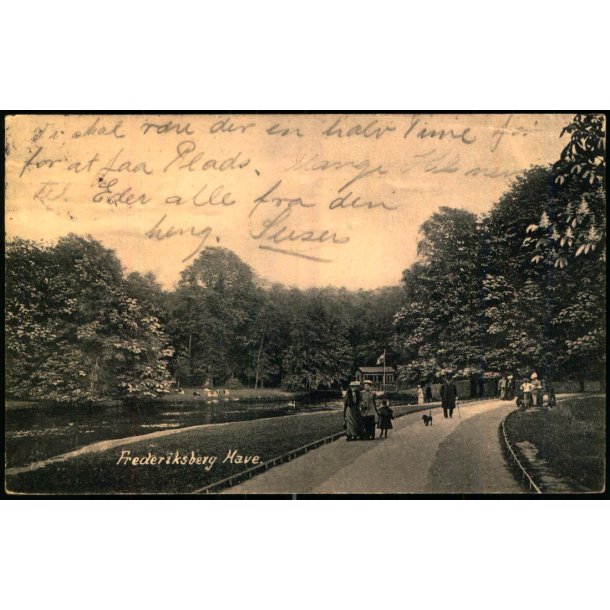 Vi skal være der en halv Time før
for at faa Plads. Mange Hilsener
til Eder alle fra den
heng. Suser
Frederiksberg Have.